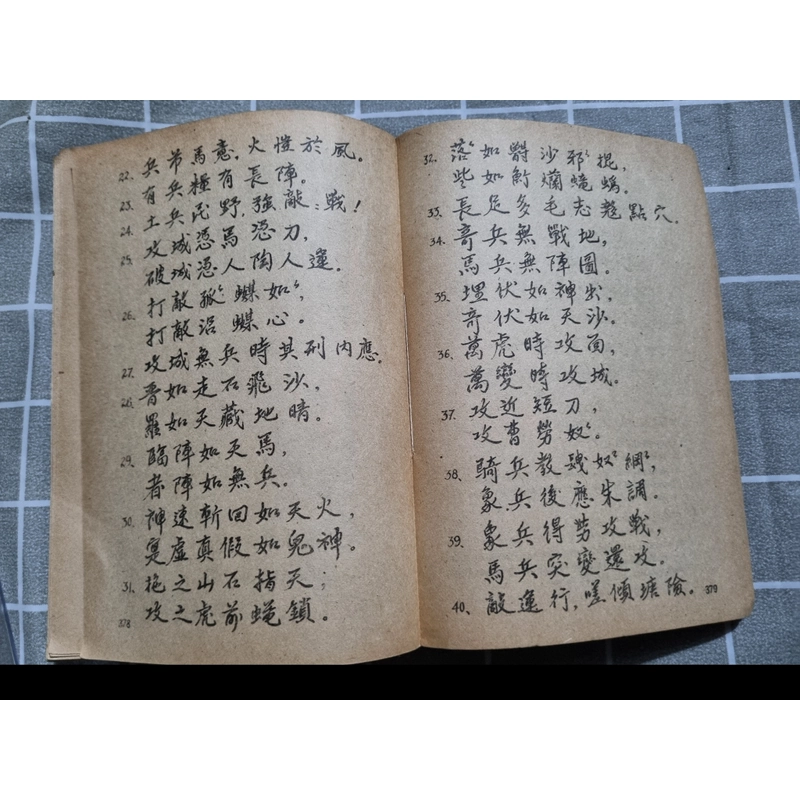 22. 兵吊馬意，火愷於風。
23. 有兵糧有長陣。
24. 土兵民野，強敵：戰！
25. 攻城憑馬憑刀，
破城憑人陶人運．
26. 打敵孤 蝶如，
打敵沿 蝶心。
27. 攻城無兵時其列內應．
28. 晋如走石飛沙，
羅如天藏地暗。
29. 臨陣如天馬，
者陣如無兵。
30. 神速斬回如天火，
寔虛真假如鬼神。
31. 拖之山石指天；
攻之虎前蝇鎖。
378
32. 落如爵沙邪掍，
些如魝爛蜿蝸。
33. 長足多毛志蔻點穴．
34. 奇兵無戰地，
馬兵無陣圖。
35. 埋伏如神出，
奇伏如天沙。
36. 萬虎時攻面，
萬變時攻城。
37. 攻近短刀，
攻曹勞奴。
38. 騎兵教 奴網，
象兵後應朱調。
39. 象兵得势攻戰，
馬兵突變還攻。
40、敵運行，嗟傾塘險。
379